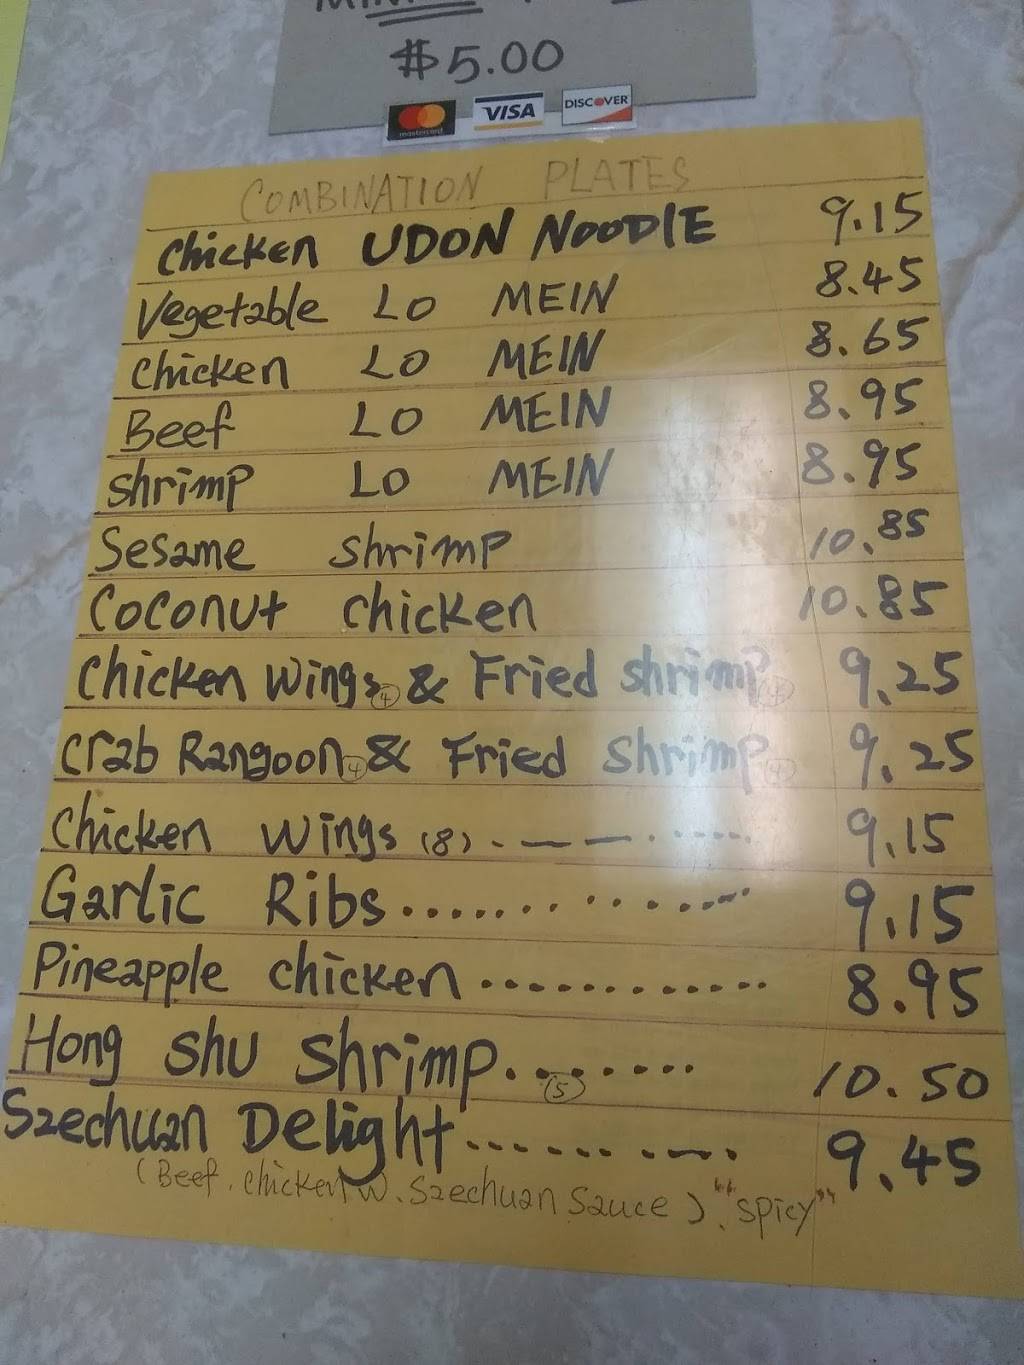 $5.00
mastercard VISA DISCOVER
COMBINATION PLATES
Chicken UDON NOODlE 9.15
Vegetable LO MEIN 8.45
Chicken LO MEIN 8.65
Beef LO MEIN 8.95
Shrimp LO MEIN 8.95
Sesame Shrimp 10.85
Coconut Chicken 10.85
Chicken Wings (4) & Fried Shrimp (4) 9.25
Crab Rangoon (4) & Fried Shrimp (4) 9.25
Chicken Wings (8) 9.15
Garlic Ribs 9.15
Pineapple chicken 8.95
Hong Shu Shrimp (5) 10.50
Szechuan Delight 9.45
(Beef, Chicken W. Szechuan Sauce) "Spicy"